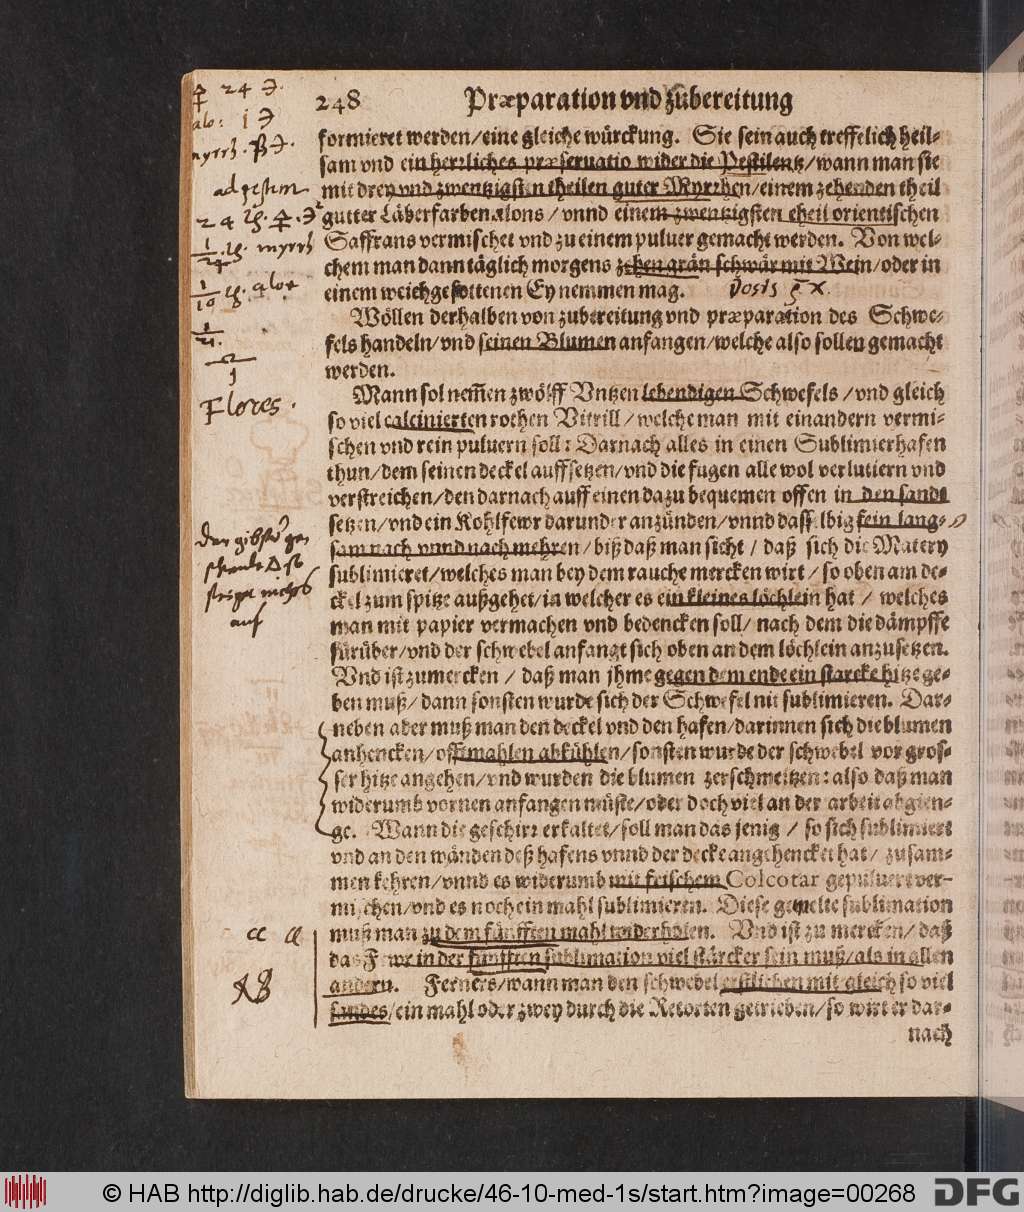 248 Præparation vnd zubereitung
formieret werden/eine gleiche würckung. Sie sein auch treffelich heil-
sam vnd ein hertzliches præseruatio wider die Pestilentz/wann man sie
mit drey vnd zwentzigsten theilen guter Myrrhen/einem zehenden theil
gutter Läberfarben alons/vnnd einem zwentzigsten theil orientischen
Saffrans vermischet vnd zu einem puluer gemacht werden. Von wel-
chem man dann täglich morgens zehen grän schwär mit Wein/oder in
einem weichgesottenen Ey nemmen mag.
Dosis
Wöllen derhalben von zubereitung vnd præparation des Schwe-
fels handeln/vnd seinen Blumen anfangen/welche also sollen gemacht
werden.
Flores.
Mann sol nem̃en zwölff Vntzen lebendigen Schwefels/vnd gleich
so viel calcinierten rothen Vitrill/welche man mit einandern vermi-
schen vnd rein puluern soll: Darnach alles in einen Sublimierhafen
thun/dem seinen deckel auffsetzen/vnd die fugen alle wol verlutiern vnd
verstreichen/den darnach auff einen dazu bequemen offen in den sandt
setzen/vnd ein Kohlfewr darunder anzünden/vnnd dasselbig fein lang-
sam nach vnnd nach mehren/biß daß man sicht/daß sich die Matery
sublimieret/welches man bey dem rauche mercken wirt/so oben am de-
ckel zum spitze außgehet/in welcher es ein kleines löchlein hat/welches
man mit papier vermachen vnd bedencken soll/nach dem die dämpffe
fürüber/vnd der schwebel anfangt sich oben an dem löchlein anzusetzen.
Vnd ist zumercken/daß man jhme gegen dem ende ein starcke hitze ge-
ben muß/dann sonsten wurde sich der Schwefel nit sublimieren. Dar-
neben aber muß man den deckel vnd den hafen/darinnen sich die blumen
anhencken/offtmahlen abkühlen/sonsten wurde der schwebel vor gros-
ser hitze angehen/vnd wurden die blumen zerschmeltzen: also daß man
widerumb vornen anfangen müste/oder doch viel an der arbeit abgien-
ge. Wann die geschirr erkaltet/soll man das jenig/so sich sublimiert
vnd an den wänden deß hafens vnnd der decke angehencket hat/zusam-
men kehren/vnnd es widerumb mit frischem Colcotar gepuluert ver-
mischen/vnd es noch ein mahl sublimieren. Diese gemelte sublimation
muß man zu dem fünfften mahl widerholen. Vnd ist zu mercken/daß
das Fewr in der fünfften sublimation viel stärcker sein muß/als in allen
andern. Ferners/wann man den schwebel erstlichen mit gleich so viel
sandes/ein mahl oder zwey durch die Retorten getrieben/so wirt er dar-
nach
© HAB http://diglib.hab.de/drucke/46-10-med-1s/start.htm?image=00268 DFG